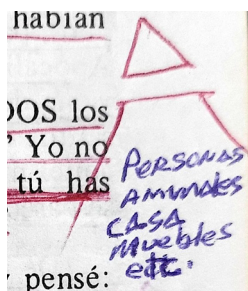 habían
OS los
Yo no
tú has
pensé:
PERSONAS
ANIMALES
CASA
MUEBLES
etc.